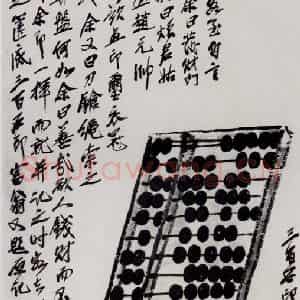 客至自言
余曰發財門
曰煩君姑
趙元帥
欲画印璽衣冠
余又曰刀鎗繩索之
算盤何如余曰善哉欲人錢財而不
余即一揮而就并記之時客去
之篋底三百石印富翁又題原記
三百石印
Shufawang.cn